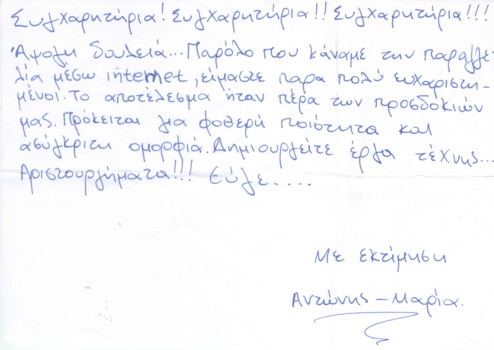 Συγχαρητήρια! Συγχαρητήρια!! Συγχαρητήρια!!!
Άψογη δουλειά... Παρόλο που κάναμε την παραγγε-
λία μέσω internet, είμαστε παρα πολύ ευχαριστη-
μένοι. Το αποτέλεσμα ήταν πέρα των προσδοκιών
μας. Πρόκειται για φοβερή ποιότητα και
ασύγκριτη ομορφιά. Δημιουργείτε έργα τέχνης...
Αριστουργήματα!!! Εύγε....
Με εκτίμηση
Αντώνης - Μαρία.